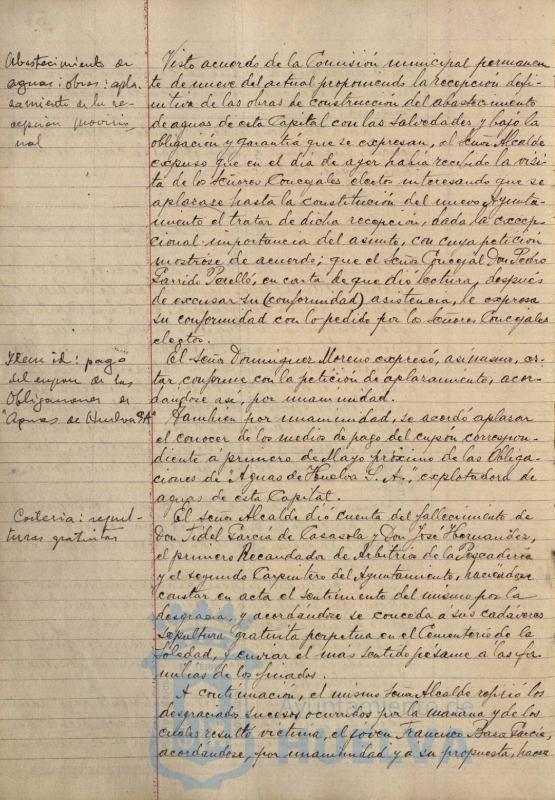 Abastecimiento de
aguas: obras: apla-
zamiento de la re-
cepción provisio-
nal
Visto acuerdo de la Comisión municipal permanen
te de nueve del actual proponiendo la recepción defi-
nitiva de las obras de construccion del abastecimiento
de aguas de esta Capital con las salvedades y bajo la
obligación y garantía que se expresan, el Señor Alcalde
expuso que en el día de ayer habia recibido la visi
ta de los Señores Concejales electos interesando que se
aplazase hasta la constitución del nuevo Ayunta-
miento el tratar de dicha recepción, dada la excep-
cional importancia del asunto, con cuya petición
mostróse de acuerdo; que el Señor Concejal Don Pedro
Garrido Perelló, en carta de que dió lectura, después
de excusar su (conformidad) asistencia, le expresa
su conformidad con lo pedido por los Señores Concejales
electos.
Item id: pago
del cupon de las
Obligaciones de
"Aguas de Huelva S.A"
El Señor Dominguez Moreno expresó, asimismo, es-
tar conforme con la petición de aplazamiento, acor-
dandose así, por unanimidad.
Tambien por unanimidad, se acordó aplazar
el conocer de los medios de pago del cupón correspon-
diente á primero de Mayo próximo de las Obliga-
ciones de "Aguas de Huelva S. A.", explotadora de
aguas de esta Capital.
Cortesia: sepul-
turas gratuitas
El Señor Alcalde dió cuenta del fallecimiento de
Don Fidel Garcia de Casasola y Don José Hernandez,
el primero Recaudador de Arbitrios de la Pescaderia
y el segundo Carpintero del Ayuntamiento, haciéndose
constar en acta el sentimiento del mismo por la
desgracia, y acordándose se conceda a sus cadáveres
sepultura gratuita perpetua en el Cementerio de la
Soledad, y enviar el mas sentido pésame a las fa-
milias de los finados.
A continuación, el mismo Señor Alcalde refirió los
desgraciados sucesos ocurridos por la mañana y de los
cuales resultó victima, el joven Francisco Baza Garcia,
acordándose, por unanimidad y a su propuesta, hacer
Ayuntamiento de